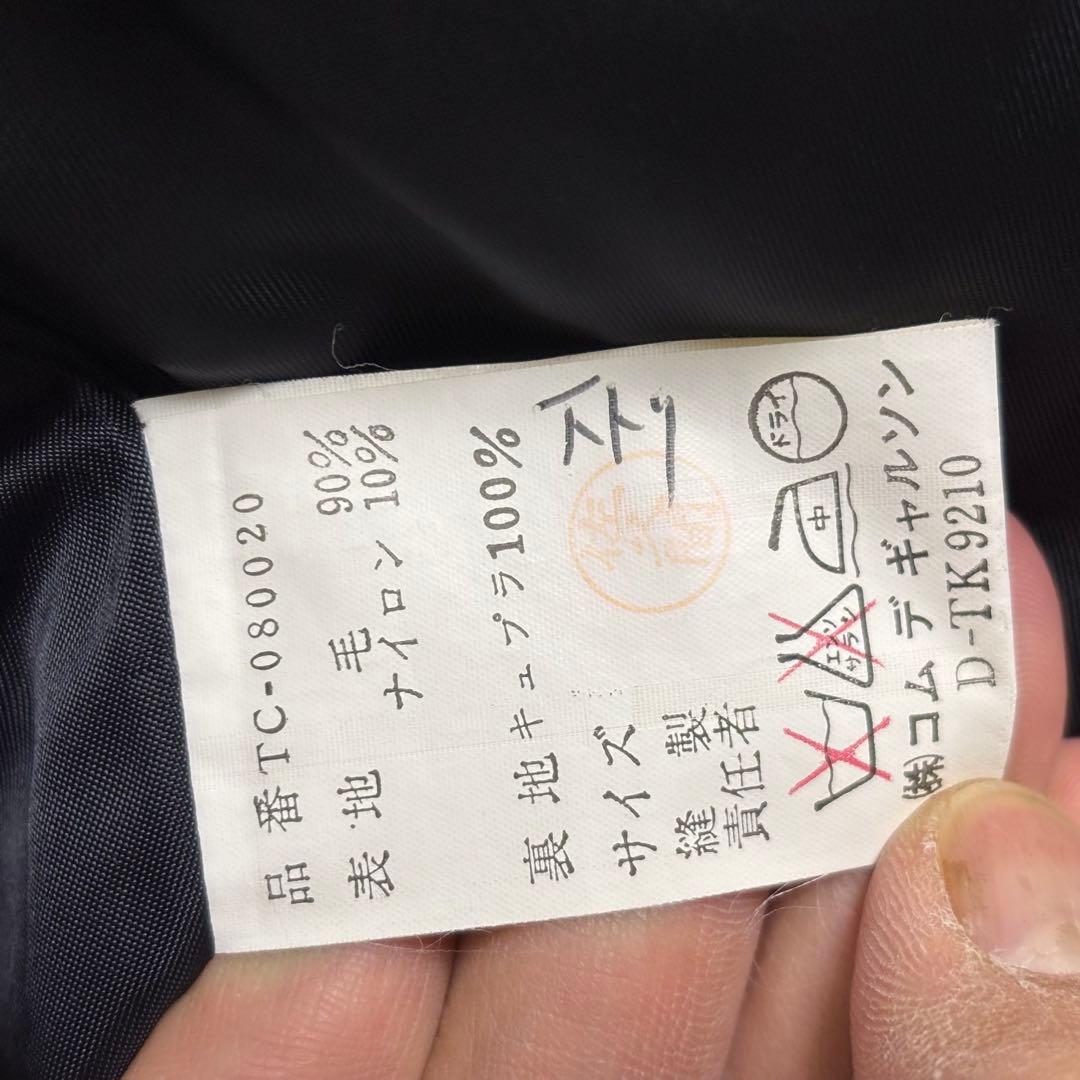 品 番 TC-080020
表 地 毛 90%
ナイロン 10%
裏 地 キュプラ 100%
サイズ
縫製
責任者
エンソ
サラシ
中
ドライ
㈱コム デ ギャルソン
D-TK9210